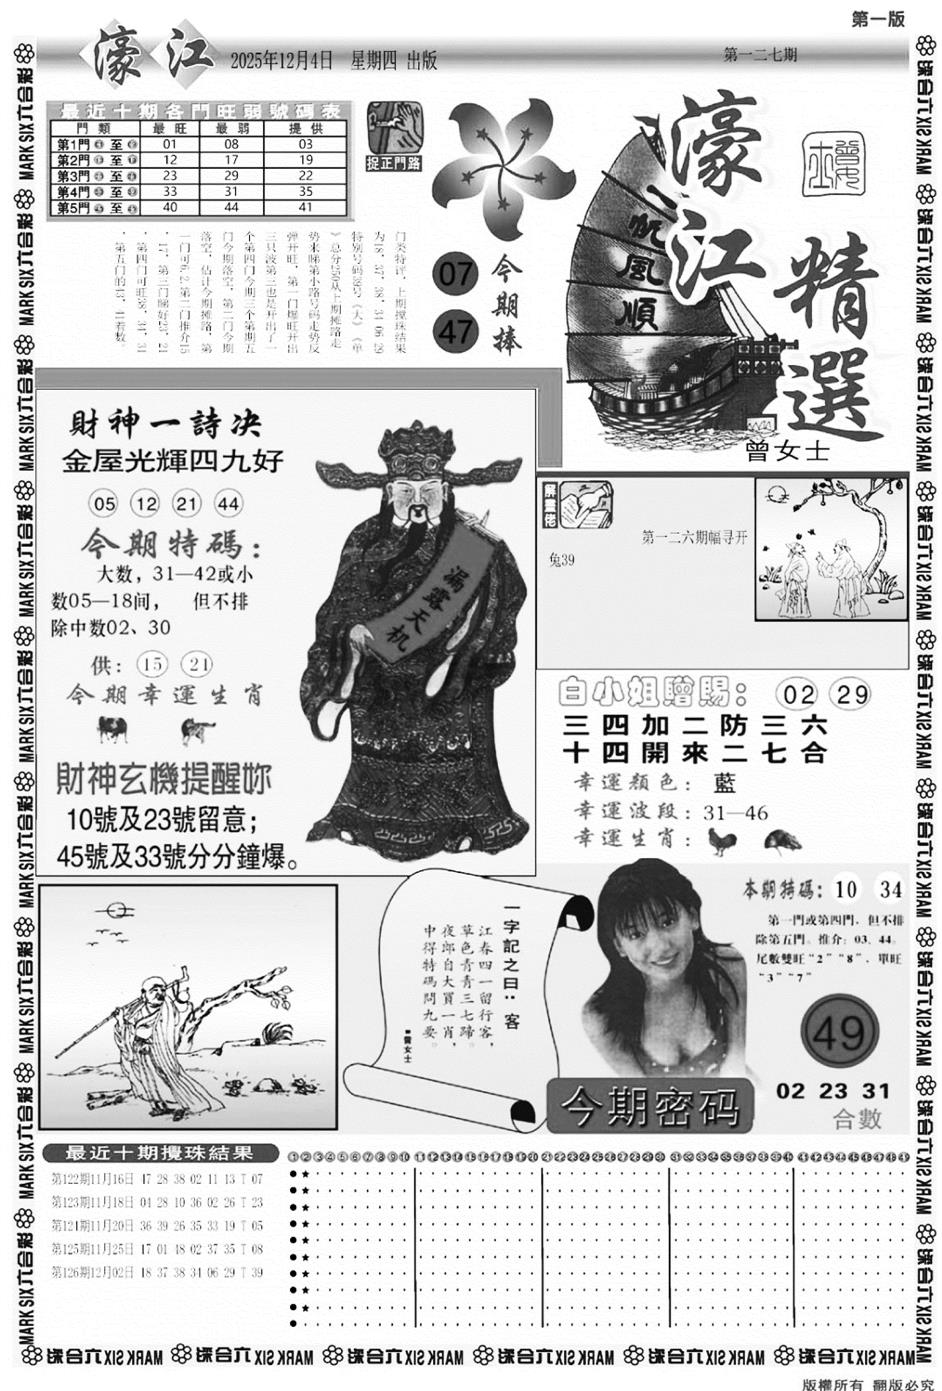 第一版
濠江
2025年12月4日 星期四 出版
第一二七期
最近十期各門旺弱號碼表
門類 最旺 最弱 提供
第1門 至 01 08 03
第2門 至 12 17 19
第3門 至 23 29 22
第4門 至 33 31 35
第5門 至 40 44 41
捉正門路
门类特评，上期搅珠结果
为18、37、38、34 06 29
特别号码39号（大）（单
）总分250从上期摊路走
势来睇第小路号码走势反
弹开旺，第一门爆旺开出
三只波第三也是开出了一
个第四门今期三个第期五
门今期落空，第二门今期
落空，估计今期摊路，第
一门可6.2.第二门推介15
，17，第三门睇好23，21
，第四门可旺38，34，31
，第五门的43，41着数。
07
47
今期捧
濠江
精選
一帆風順
曾女士
財神一詩決
金屋光輝四九好
05 12 21 44
今期特碼：
大数，31—42或小
数05—18间， 但不排
除中数02、30
供：15 21
今期幸運生肖
財神玄機提醒妳
10號及23號留意；
45號及33號分分鐘爆。
漏露天机
第一二六期幅寻开
兔39
白小姐贈賜：02 29
三四加二防三六
十四開來二七合
幸運顏色：藍
幸運波段：31—46
幸運生肖：
一字記之曰：客
江春四一留行客，
草色青青三七蹄。
夜郎自大買一肖，
中得特碼問九要。
■曾女士
本期特碼：10 34
第一門或第四門，但不排
除第五門。推介：03、44。
尾數雙旺“2”“8”，單旺
“3”“7”
49
02 23 31
合數
今期密码
最近十期攪珠結果
第122期11月16日 47 28 38 02 11 13 T 07
第123期11月18日 04 28 10 36 02 26 T 23
第124期11月20日 36 39 26 35 33 19 T 05
第125期11月25日 47 01 48 02 37 35 T 08
第126期12月02日 18 37 38 34 06 29 T 39
MARK SIX六合彩
版權所有 翻版必究